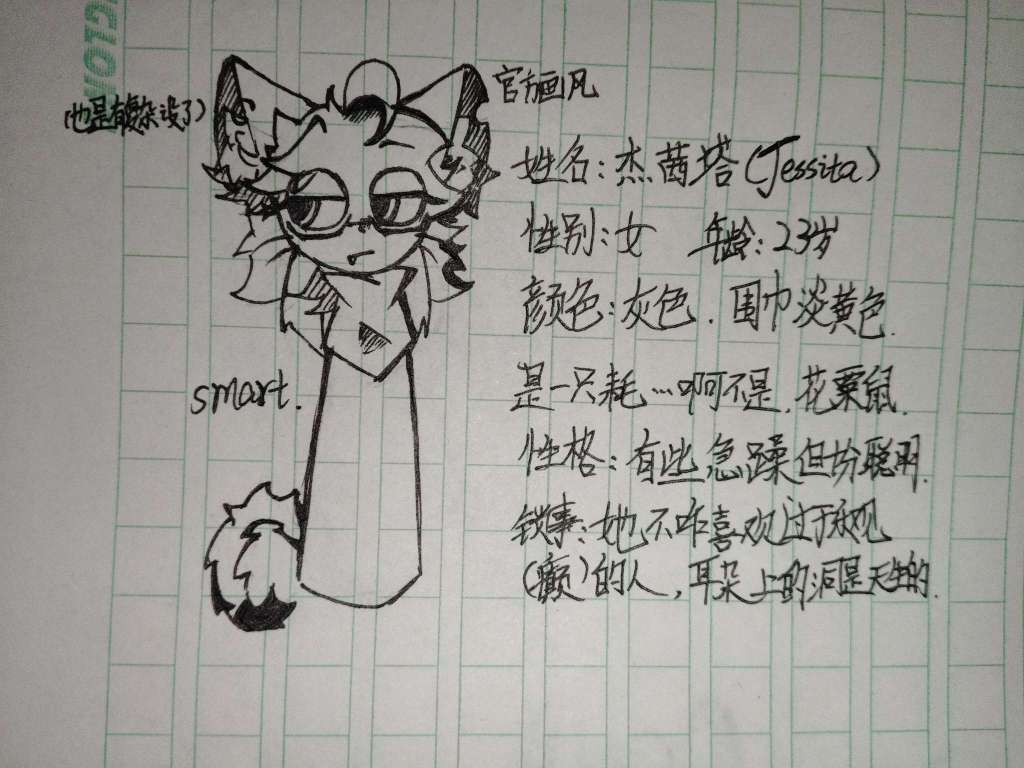 官方画风
(也是有复杂没了)
姓名:杰茜塔(Jessita)
性别:女 年龄:23岁
颜色:灰色.围巾淡黄色.
是一只耗…啊不是.花栗鼠.
smart.
性格:有些急躁但份聪明.
锁事:她不咋喜欢过于乐观
(癫)的人,耳朵上的洞是天生的.